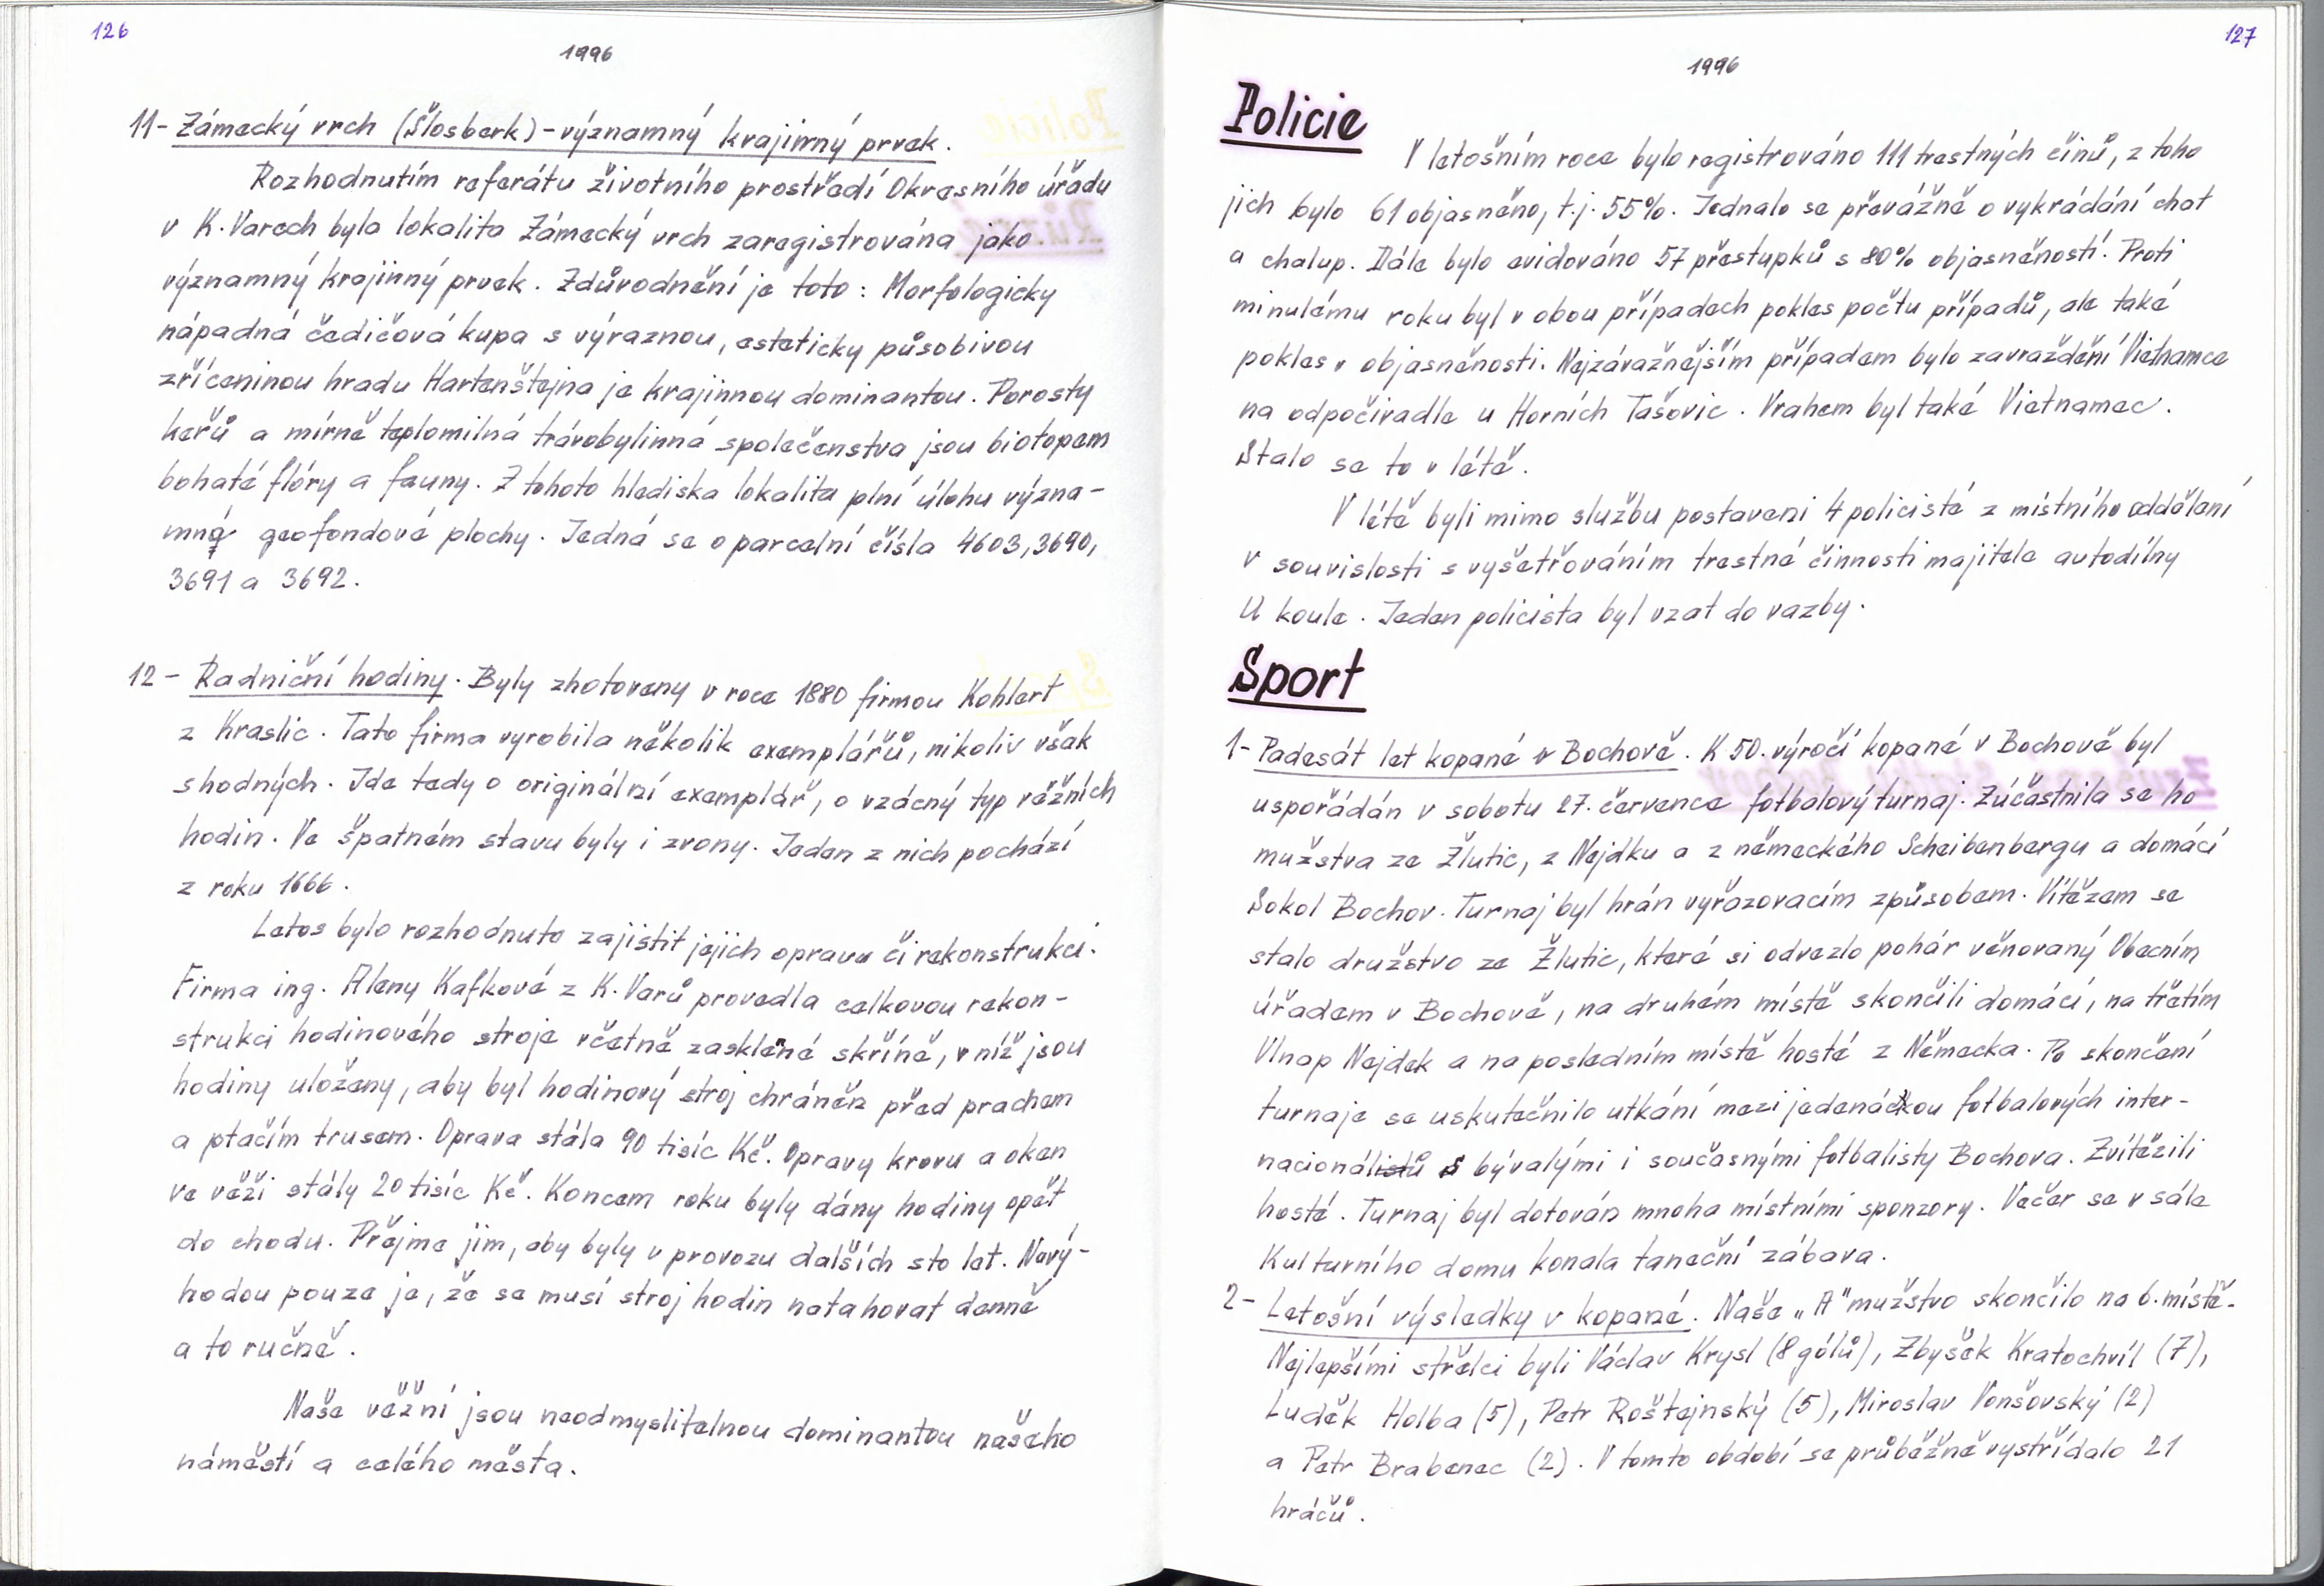 126
1996
11- Zámecký vrch (Šlosberk) - významný krajinný prvek.
Rozhodnutím referátu životního prostředí Okresního úřadu
v K. Varech byla lokalita Zámecký vrch zaregistrována jako
významný krajinný prvek. Zdůvodnění je toto: Morfologicky
nápadná čedičová kupa s výraznou, esteticky působivou
zříceninou hradu Hartenštejna je krajinnou dominantou. Porosty
keřů a mírně teplomilná trávobylinná společenstva jsou biotopem
bohaté flóry a fauny. Z tohoto hlediska lokalita plní úlohu význa-
mné geofondové plochy. Jedná se o parcelní čísla 4603, 3690,
3691 a 3692.
12 - Radniční hodiny. Byly zhotoveny v roce 1880 firmou Kohlert
z Kraslic. Tato firma vyrobila několik exemplářů, nikoliv však
shodných. Jde tedy o originální exemplář, o vzácný typ věžních
hodin. Ve špatném stavu byly i zvony. Jeden z nich pochází
z roku 1666.
Letos bylo rozhodnuto zajistit jejich opravu či rekonstrukci.
Firma ing. Aleny Kafkové z K. Varů provedla celkovou rekon-
strukci hodinového stroje včetně zasklené skříně, v níž jsou
hodiny uloženy, aby byl hodinový stroj chráněn před prachem
a ptačím trusem. Oprava stála 90 tisíc Kč. Opravy krovu a oken
ve věži stály 20 tisíc Kč. Koncem roku byly dány hodiny opět
do chodu. Přejme jim, aby byly v provozu dalších sto let. Nevý-
hodou pouze je, že se musí stroj hodin natahovat denně
a to ručně.
Naše věžní jsou neodmyslitelnou dominantou našeho
náměstí a celého města.
127
1996
Policie
V letošním roce bylo registrováno 111 trestných činů, z toho
jich bylo 61 objasněno, t.j. 55%. Jednalo se převážně o vykrádání chat
a chalup. Dále bylo evidováno 57 přestupků s 80% objasněností. Proti
minulému roku byl v obou případech pokles počtu případů, ale také
pokles v objasněnosti. Nejzávažnějším případem bylo zavraždění Vietnamce
na odpočivadle u Horních Tašovic. Vrahem byl také Vietnamec.
Stalo se to v létě.
V létě byli mimo službu postaveni 4 policisté z místního oddělení
v souvislosti s vyšetřováním trestné činnosti majitele autodílny
U koule. Jeden policista byl vzat do vazby.
Sport
1- Padesát let kopané v Bochově. K 50. výročí kopané v Bochově byl
uspořádán v sobotu 27. července fotbalový turnaj. Zúčastnila se ho
mužstva ze Žlutic, z Nejdku a z německého Scheibenbergu a domácí
Sokol Bochov. Turnaj byl hrán vyřazovacím způsobem. Vítězem se
stalo družstvo ze Žlutic, které si odvezlo pohár věnovaný Obecním
úřadem v Bochově, na druhém místě skončili domácí, na třetím
Vlnap Nejdek a na posledním místě hosté z Německa. Po skončení
turnaje se uskutečnilo utkání mezi jedenáctkou fotbalových inter-
nacionálistů s bývalými i současnými fotbalisty Bochova. Zvítězili
hosté. Turnaj byl dotován mnoha místními sponzory. Večer se v sále
Kulturního domu konala taneční zábava.
2- Letošní výsledky v kopané. Naše „A" mužstvo skončilo na 6. místě.
Nejlepšími střelci byli Václav Krysl (8 gólů), Zbyšek Kratochvíl (7),
Luděk Holba (5), Petr Roštejnský (5), Miroslav Vonšovský (2)
a Petr Brabenec (2). V tomto období se průběžně vystřídalo 21
hráčů.